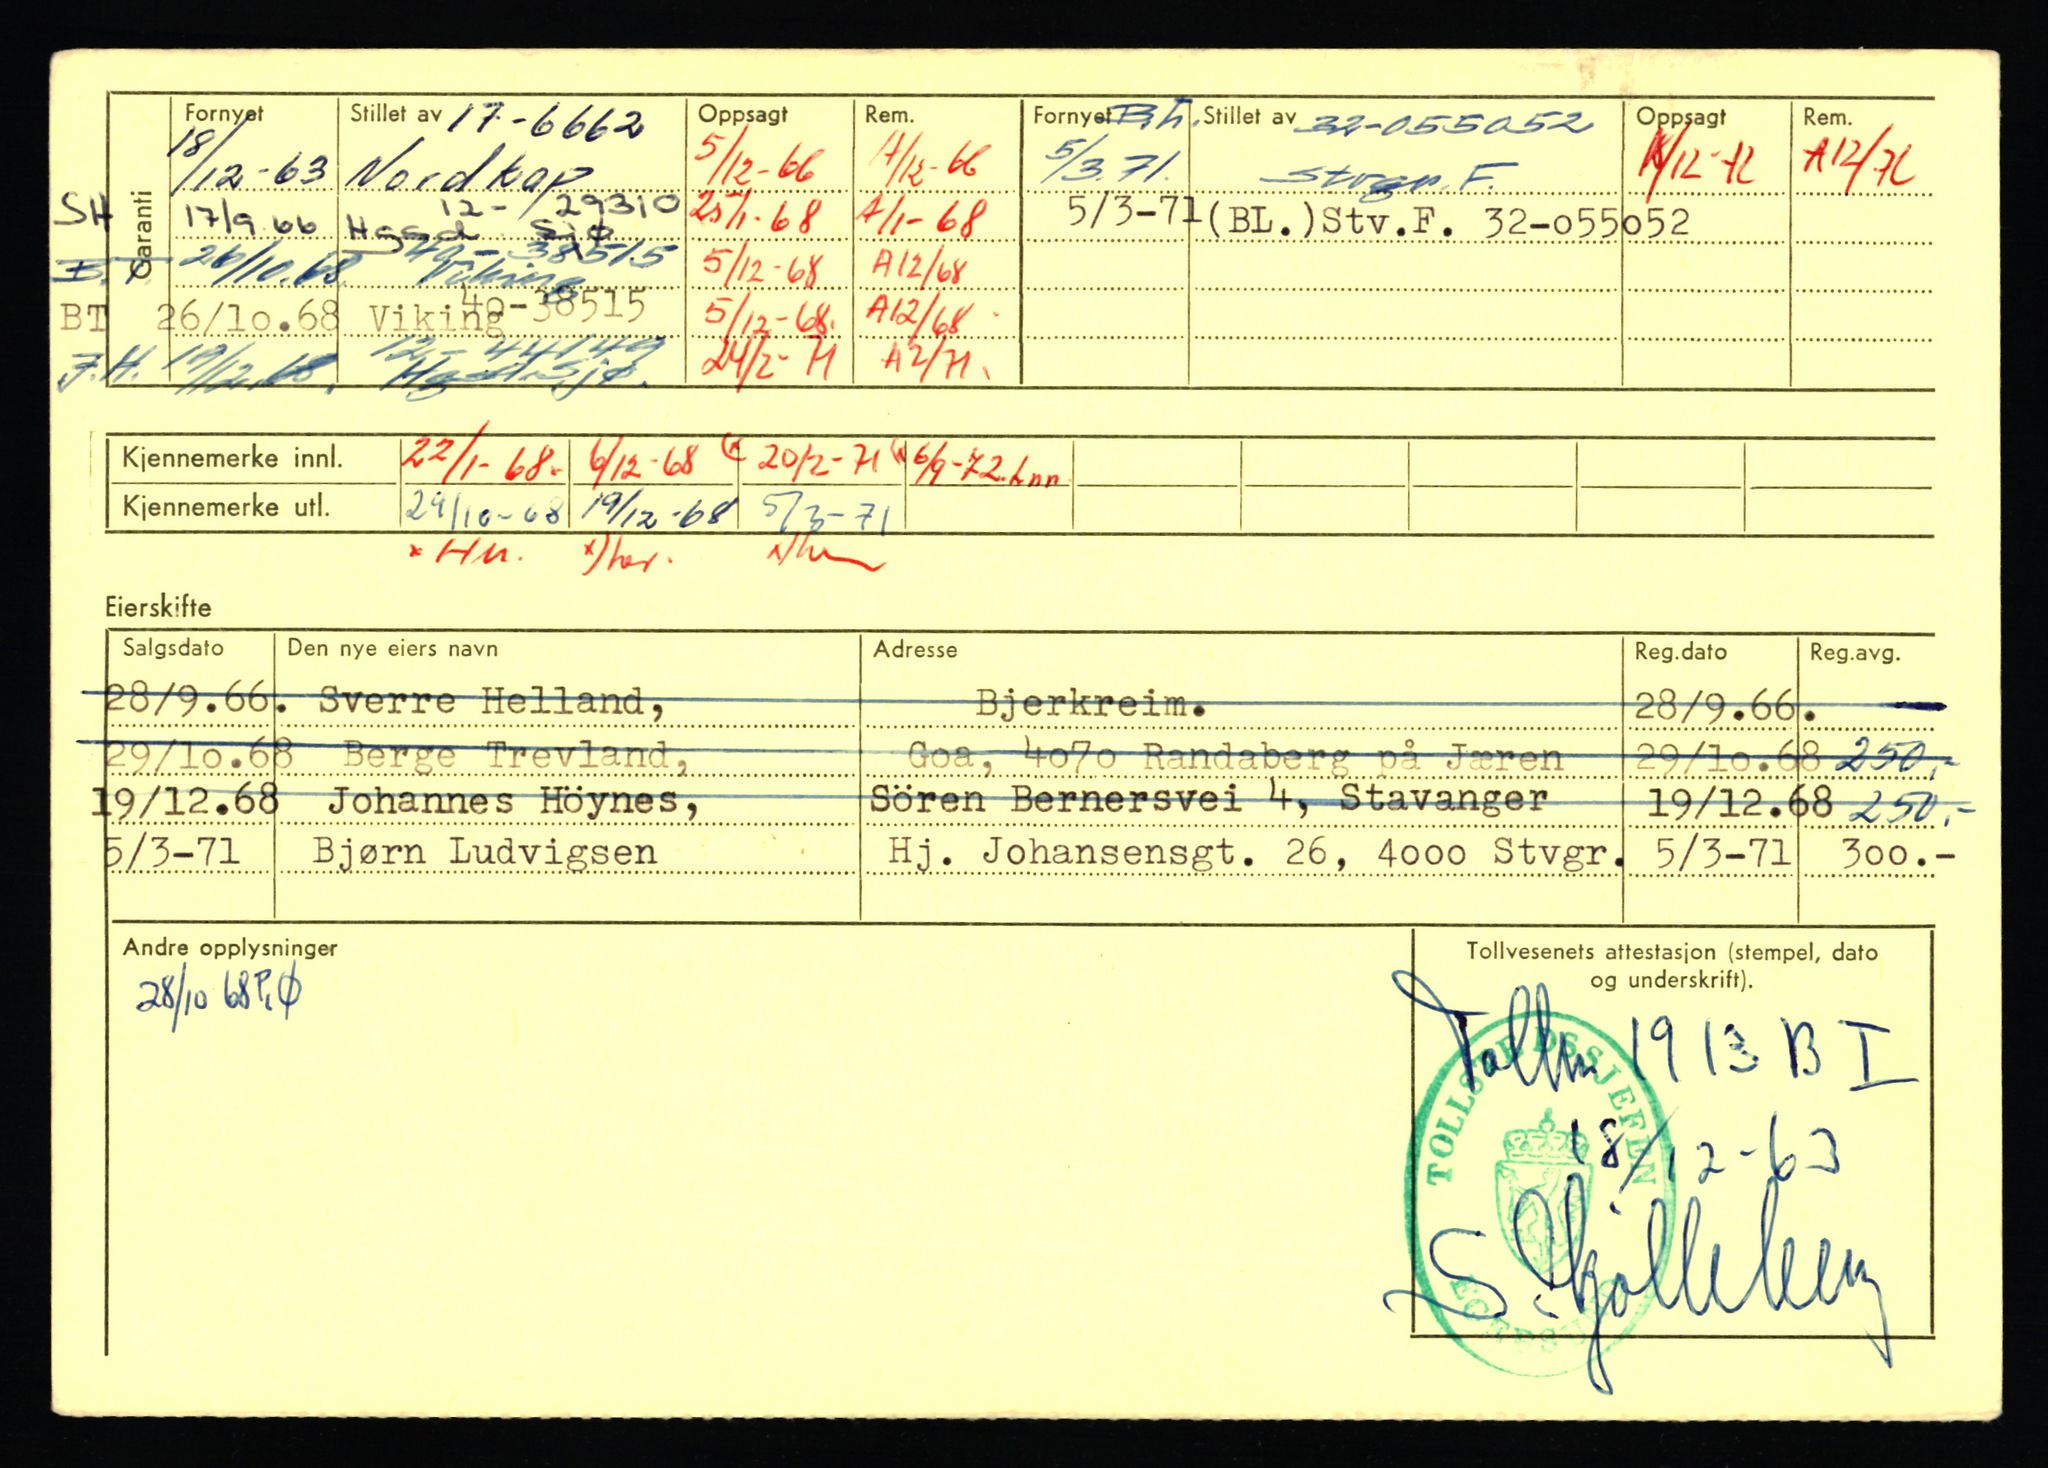 Fornyet Stillet av 17-6662 Oppsagt Rem. Fornyet B.L. Stillet av 32-055052 Oppsagt Rem.
Garanti
18/12-63 Nordkap 5/12-66 A/12-66 5/3.71. Stvgr. F. A12/72
SH 17/9 66 12-/29310 25/1-68 A/1-68 5/3-71 (BL.)Stv.F. 32-055052
26/10.68 40-38515 Viking 5/12-68 A12/68
BT 26/10.68 Viking 40-38515 5/12-68. A12/68
J.H. 19/12.68. 24/2-71 A2/71.
Kjennemerke innl. 22/1-68. 6/12-68 20/2-71 6/9-72.
Kjennemerke utl. 29/10-68 19/12-68 5/3-71
Eierskifte
Salgsdato Den nye eiers navn Adresse Reg.dato Reg.avg.
28/9.66. Sverre Helland, Bjerkreim. 28/9.66.
29/10.68 Berge Trevland, Goa, 4070 Randaberg på Jæren 29/10.68 250,-
19/12.68 Johannes Höynes, Sören Bernersvei 4, Stavanger 19/12.68 250.-
5/3-71 Bjørn Ludvigsen Hj. Johansensgt. 26, 4000 Stvgr. 5/3-71 300.-
Andre opplysninger
28/10 68
Tollvesenets attestasjon (stempel, dato
og underskrift).
1913 B I
TOLLSTEDSSJEFEN
18/12-63